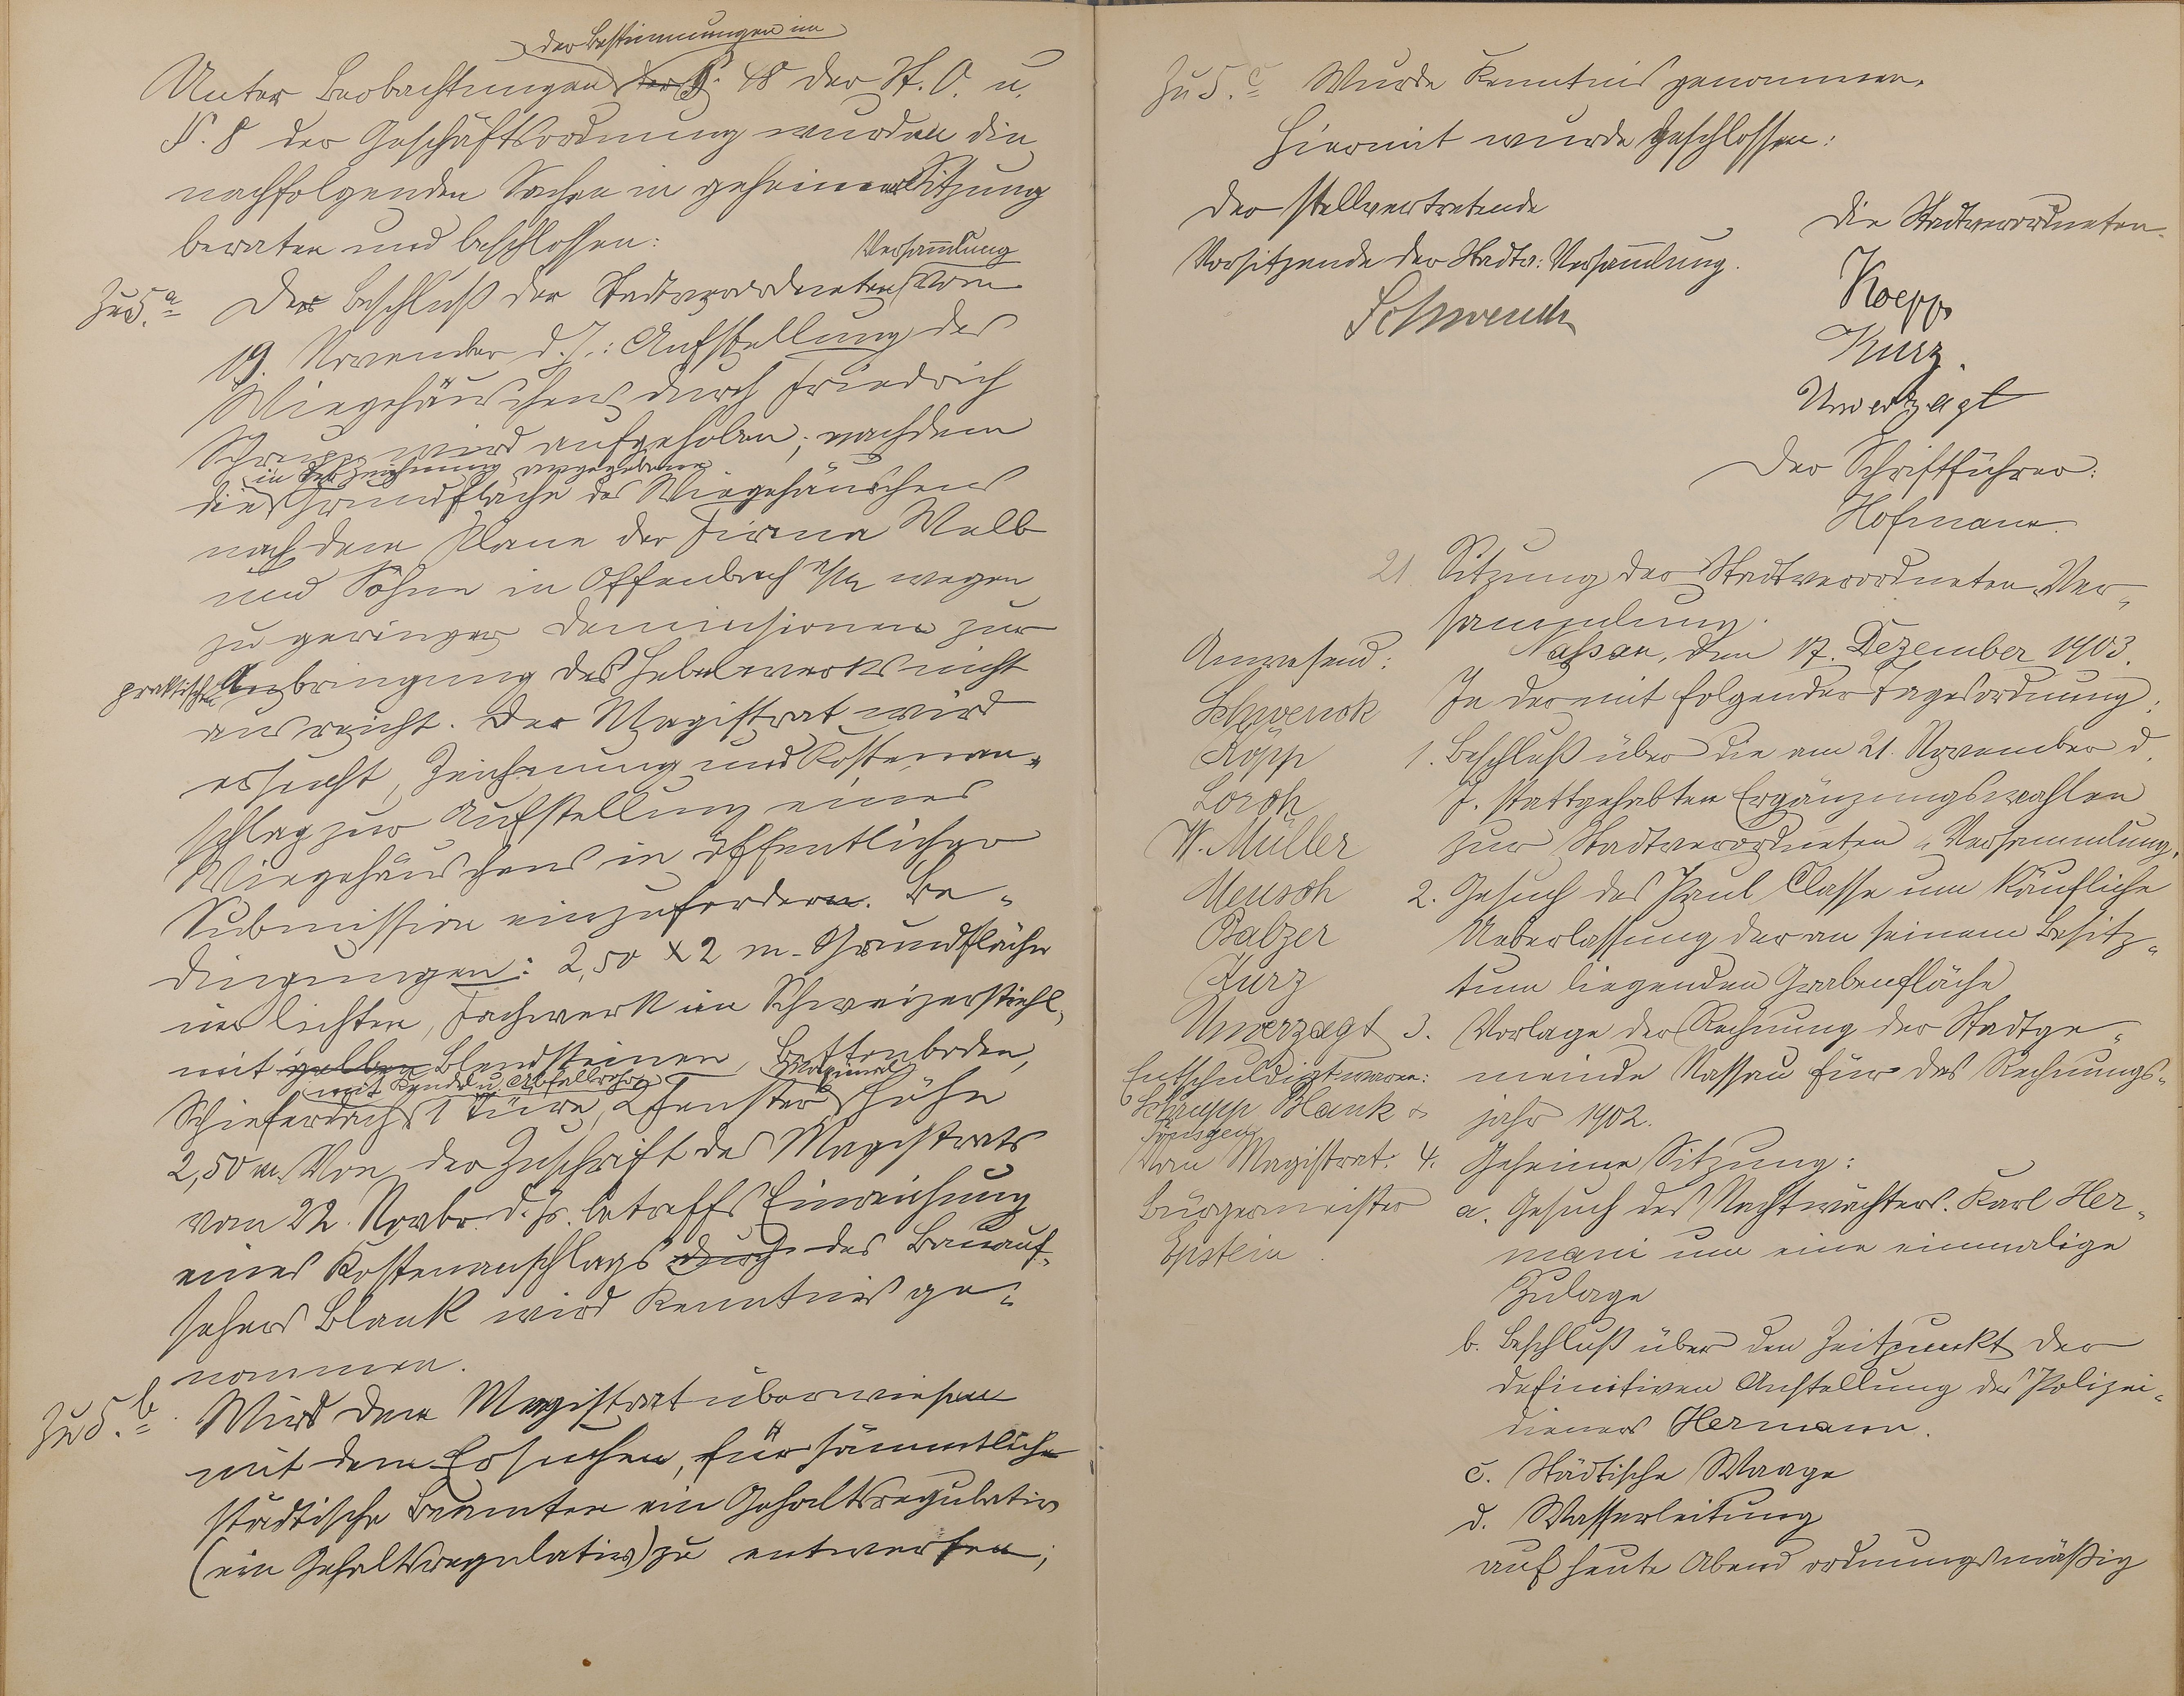 der Bestimmungen im
Unter Beobachtungen der §. 48 der St. O. u.
§. 8 der Geschäftsordnung wurden die
nachfolgenden Sachen in geheimer Sitzung
beraten und beschlossen:
Versam̄lung
Zu 5.a Der Beschluß der Stadtverordneten vom
19. November d. J.: Aufstellung des
Wiegehäuschens durch Friedrich
Schrupp wird aufgehoben, nachdem
in der Zeichnung angegebene
die Grundfläche des Wiegehäuschens
nach dem Plane der Firma
und Söhne in Offenbach a/M wegen
zu geringer Demensionen zur
praktischen Anbringung des Hebelwerks nicht
ausreicht. Der Magistrat wird
ersucht, Zeichnung und Kostenan-
schlag zur Aufstellung eines
Wiegehäuschens in öffentlicher
Submission einzufordern. Be-
dingungen: 2,50 x 2 m. Grundfläche
im lichten, Fachwerk im Schweizerstiehl,
mit gelben Blendsteinen, Bettonboden,
mit Kandel u. Abfallrohr Maximal
Schieferdach 1 Türe, 2 Fenster Höhe
2,50 m. Von der Zuschrift des Magistrats
vom 22. Novbr. d. Js. betreffs Einreichung
eines Kostenanschlags durch des Bauauf-
sehers Blank wird Kenntnis ge-
nommen.
Zu 5.b Wird dem Magistrat überwiesen
mit dem Ersuchen, für sämmtliche
städtische Beamten ein Gehaltsregulativ
(ein Gehaltsregulativ) zu entwerfen;
Zu 5.c Wurde Kenntnis genommen.
Hiermit wurde geschlossen:
Der stellvertretende
Vorsitzende der Stadtv: Versam̄lung.
Schwenck
Die Stadtverordneten.
Koepp
Kurz.
Unverzagt
Der Schriftführer:
Hofmann
21. Sitzung der Stadtverordneten Ver-
sammlung.
Nassau, den 17. Dezember 1903.
Anwesend:
Schwenck
Kopp
Lorch
W. Müller
Meusch
Balzer
Kurz
Unverzagt
Entschuldigt waren:
Schrupp Blank &
Vom Magistrat:
Bürgermeister
Epstein.
In der mit folgender Tagesordnung:
1. Beschluß über die am 21. November d.
J. stattgehabten Ergänzungswahlen
zur Stadtverordneten-Versammlung.
2. Gesuch des Paul Classe um käufliche
Ueberlassung der an seinem Besitz-
tum liegenden Grabenfläche
3. Vorlage der Rechnung der Stadtge-
meinde Nassau für das Rechnungs-
jahr 1902.
4. Geheime Sitzung:
a. Gesuch des Nachtwächters Karl Her-
mani um eine einmalige
Zulage
b. Beschluß über den Zeitpunkt der
definitiven Anstellung des Polizei-
dieners Hermann.
c. Städtische Waage
d. Wasserleitung
auf heute Abend ordnungsmäßig